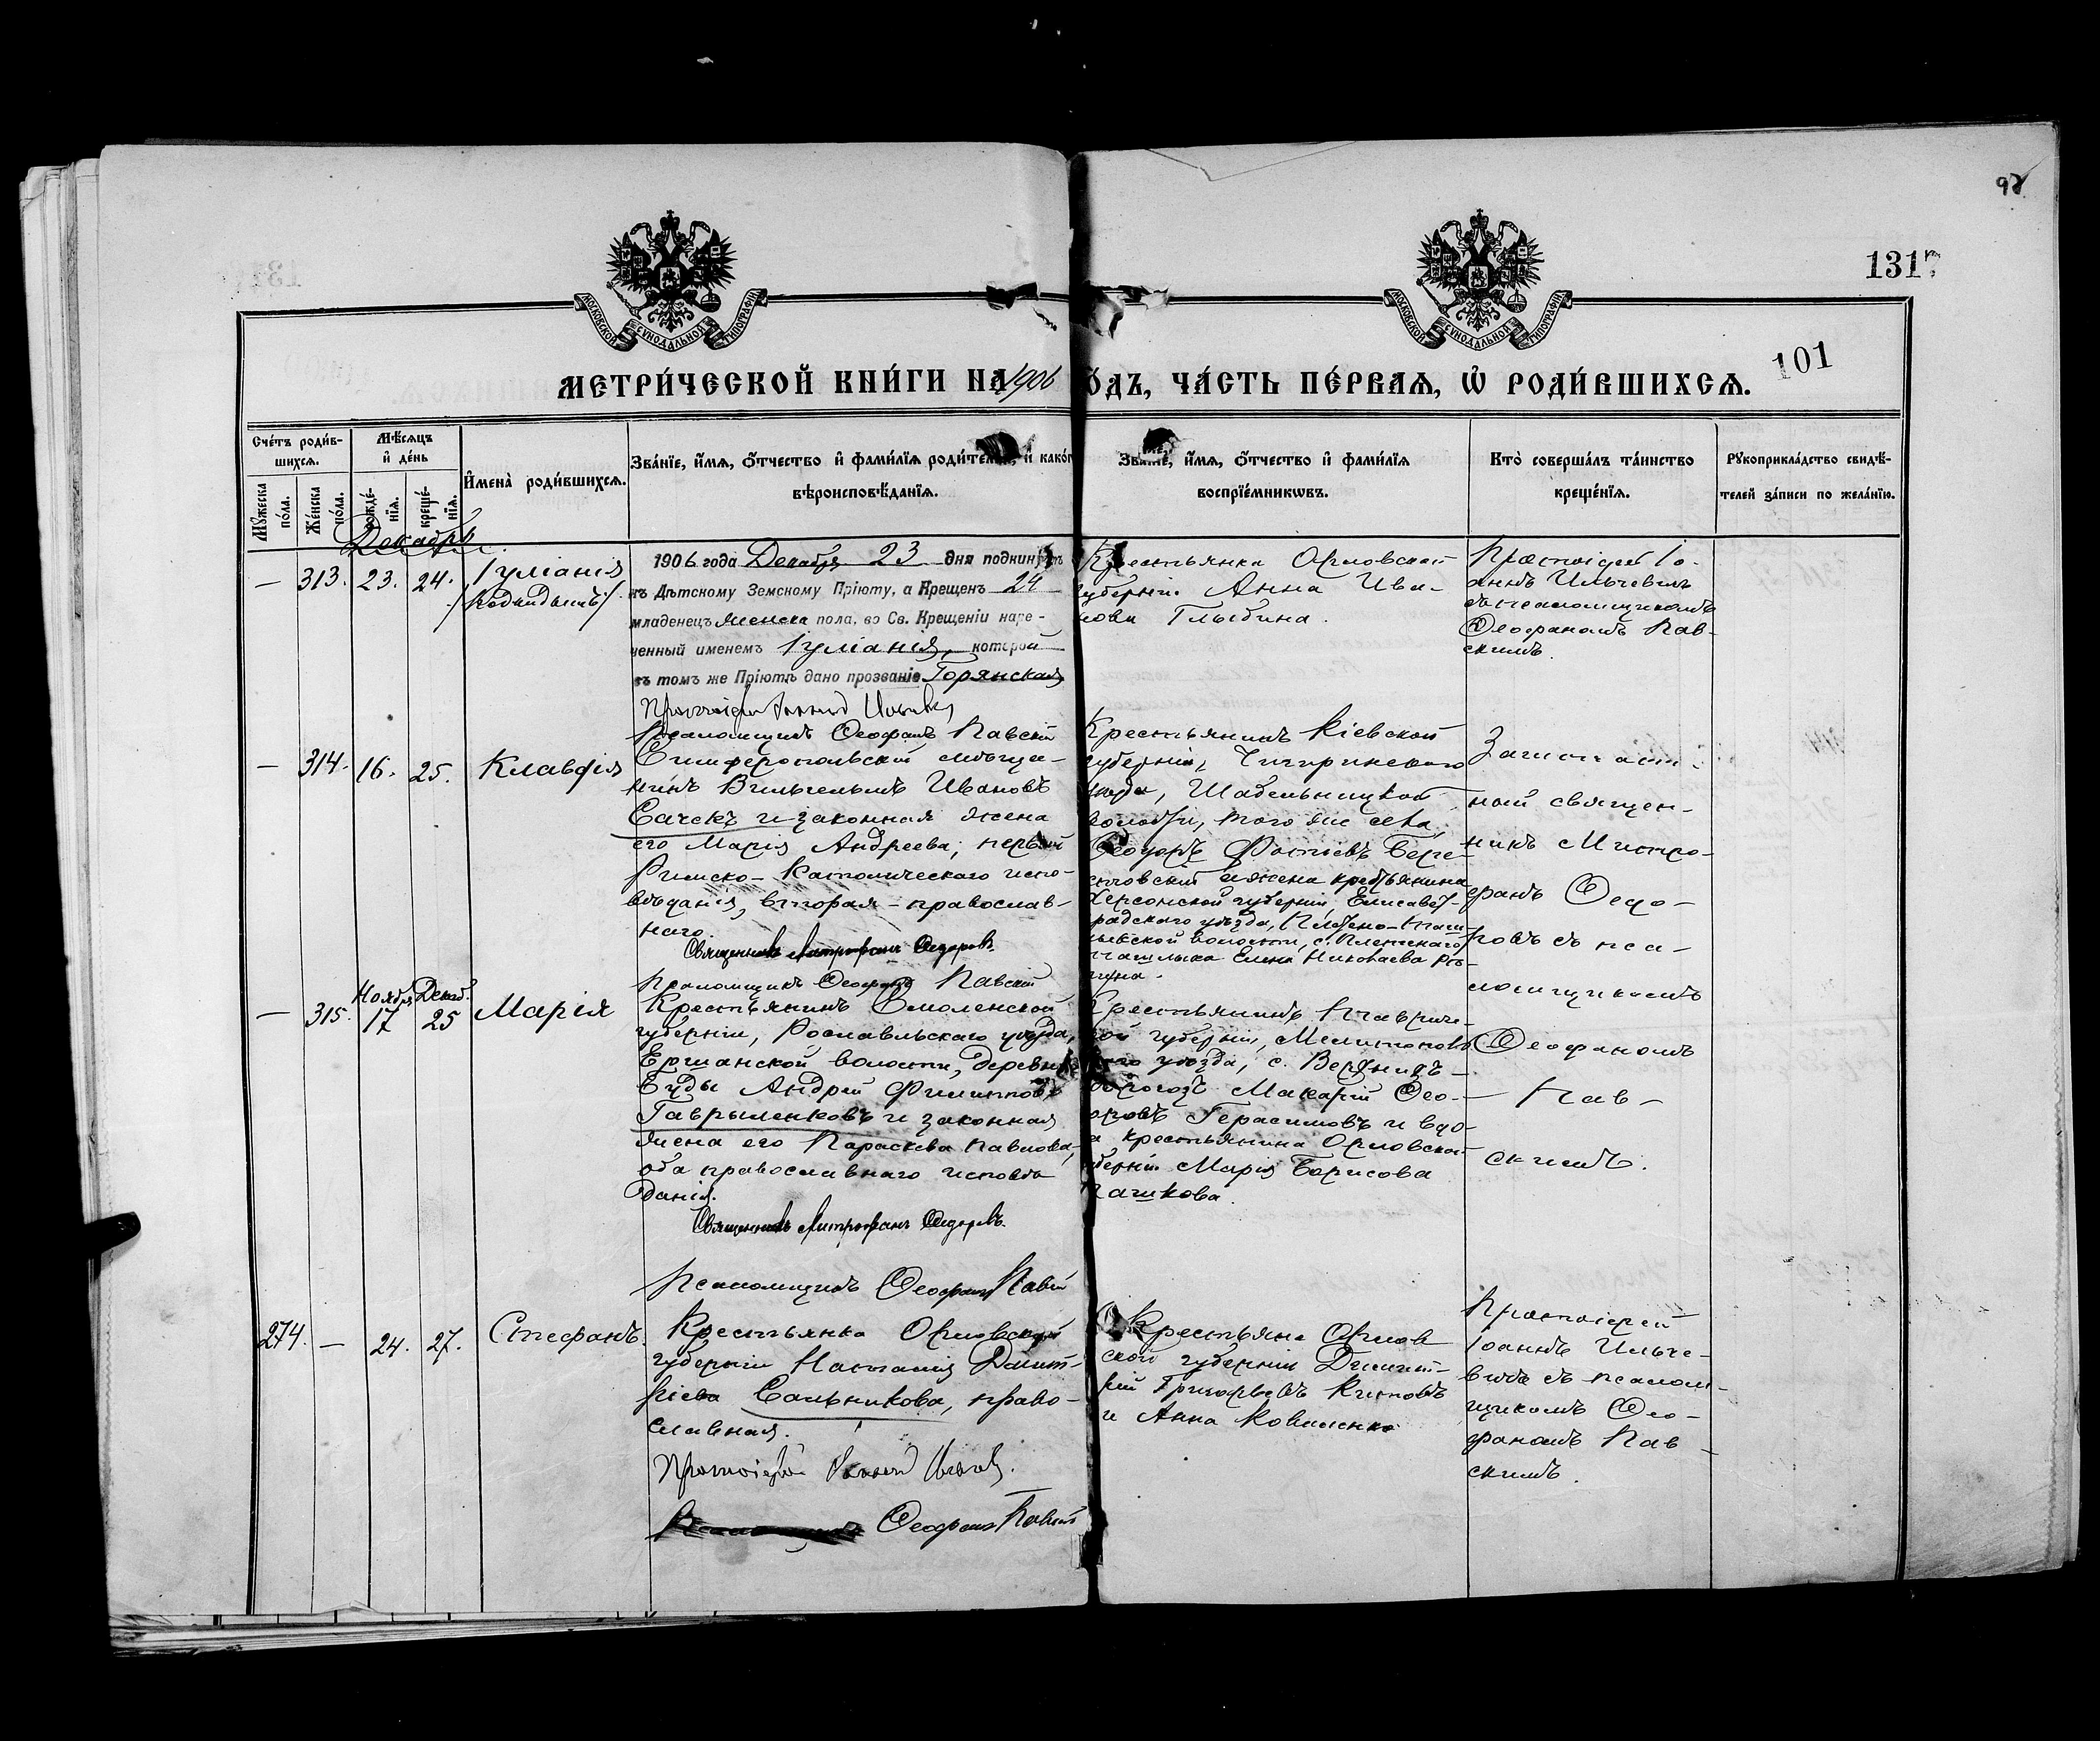 98
1317
101
МОСКОВСКОЙ СѴНОДАЛЬНОЙ ТИПОГРАФІИ
МОСКОВСКОЙ СѴНОДАЛЬНОЙ ТИПОГРАФІИ
МЕТРИ́ЧЕСКОЙ КНИ́ГИ НА 1906 ОДЪ, ЧА́СТЬ ПЕ́РВАЯ, Ѡ РОДИ́ВШИХСЯ.
Сче́тъ роди́в-
шихся.
Мꙋ́жеска по́ла.
Же́нска по́ла.
Мѣ́сяцъ и҆ де́нь
рожде́-нїѧ.
креще́-нїѧ.
И҆мена̀ роди́вшихсѧ.
Зва́нїе, и҆́мѧ, ѻ҆́тчество и҆ фами́лїѧ роди́телей, и҆ како́г
вѣроисповѣ́данїѧ.
Зва́нїе, и҆́мѧ, ѻ҆́тчество и҆ фами́лїѧ
воспрїе́мникѡвъ.
Кто̀ соверша́лъ та́инство
креще́нїѧ.
Рꙋкоприкла́дство свидѣ́-
телей за́писи по жела́нїю.
Декабрь.
— 313. 23. 24.
Іуліанія
/подкидышъ/.
1906 года Декабря 23 дня подкинутъ
къ Дѣтскому Земскому Пріюту, а Крещенъ 24
младенецъ женска пола, во Св. Крещеніи наре-
ченный именемъ Іуліанія, которой
въ томъ же Пріютѣ дано прозваніе Горянская
Протоіерей Іоаннъ
Псаломщикъ Ѳеофанъ Павскій
Крестьянка Орловской
губерніи Анна Ива-
нова Глыбина.
Протоіерей Іо-
аннъ Ильчевичъ
съ псаломщикомъ
Ѳеофаномъ Пав-
скимъ.
— 314. 16. 25.
Клавдія
Симферопольскій мѣща-
нинъ Вильгельмъ Ивановъ
Сачекъ и законная жена
его Марія Андреева; первый
Римско-Католическаго испо-
вѣданія, вторая – православ-
наго.
Священникъ Митрофанъ Ѳедоровъ.
Псаломщикъ Ѳеофанъ Павскій
Крестьянинъ Кіевской
губерніи, Чигиринскаго
уѣзда, Шабельницкой
волости, того же села,
Ѳеодоръ Фотіевъ Бере-
стовскій и жена крестьянина
Херсонской губерніи, Елисавет-
радскаго уѣзда, Плетено-Таш-
лыкской волости, с. Плетенаго
Ташлыка Елена Николаева
Заштат-
ный священ-
никъ Митро-
фанъ Ѳедо-
ровъ съ пса-
ломщикомъ
Ѳеофаномъ
Пав-
скимъ.
Ноября Декаб.
— 315. 17 25
Марія
Крестьянинъ Смоленской
губерніи, Рославльскаго уѣзда,
Ершанской волости, деревни
Буды Андрей Филипповъ
Гаврыленковъ и законная
жена его Параскева Павлова,
оба православнаго исповѣ
данія.
Священникъ Митрофанъ Ѳедоровъ.
Псаломщикъ Ѳеофанъ Павскій
Крестьянинъ Тавриче-
ской губерніи, Мелитополь
скаго уѣзда, с. Верхнихъ-
Рогозъ Макарій Ѳео-
доровъ Герасимовъ и вдо-
а крестьянина Орловской
губерніи Марія Борисова
274. — 24. 27.
Стефанъ.
Крестьянка Орловской
губерніи Наталія Димит-
ріева Сальникова, право-
славная.
Протоіерей Іоаннъ
Ѳеофанъ Павскій
Крестьяне Орлов
ской губерніи Димит-
рій Григорьевъ Китовъ
и Анна Коваленко
Протоіерей
Іоаннъ Ильче-
вичъ съ псалом-
щикомъ Ѳео-
фаномъ Пав-
скимъ.